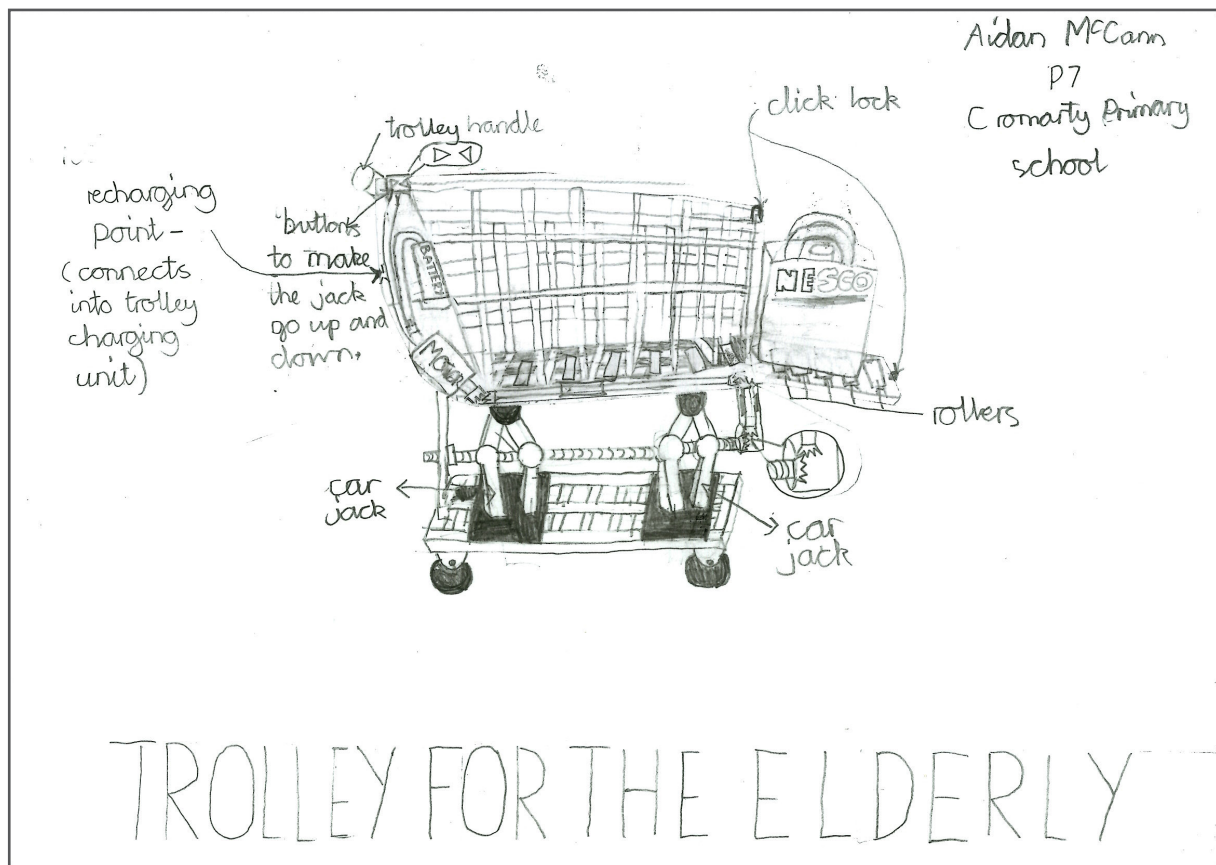 Aidan McCann
P7
Cromarty Primary
school
click lock
trolley handle
recharging
point -
(connects
into trolley
charging
unit)
buttons
to make
the jack
go up and
down.
BATTERY
MOTOR
NESCO
rollers
car
jack
car
jack
TROLLEY FOR THE ELDERLY